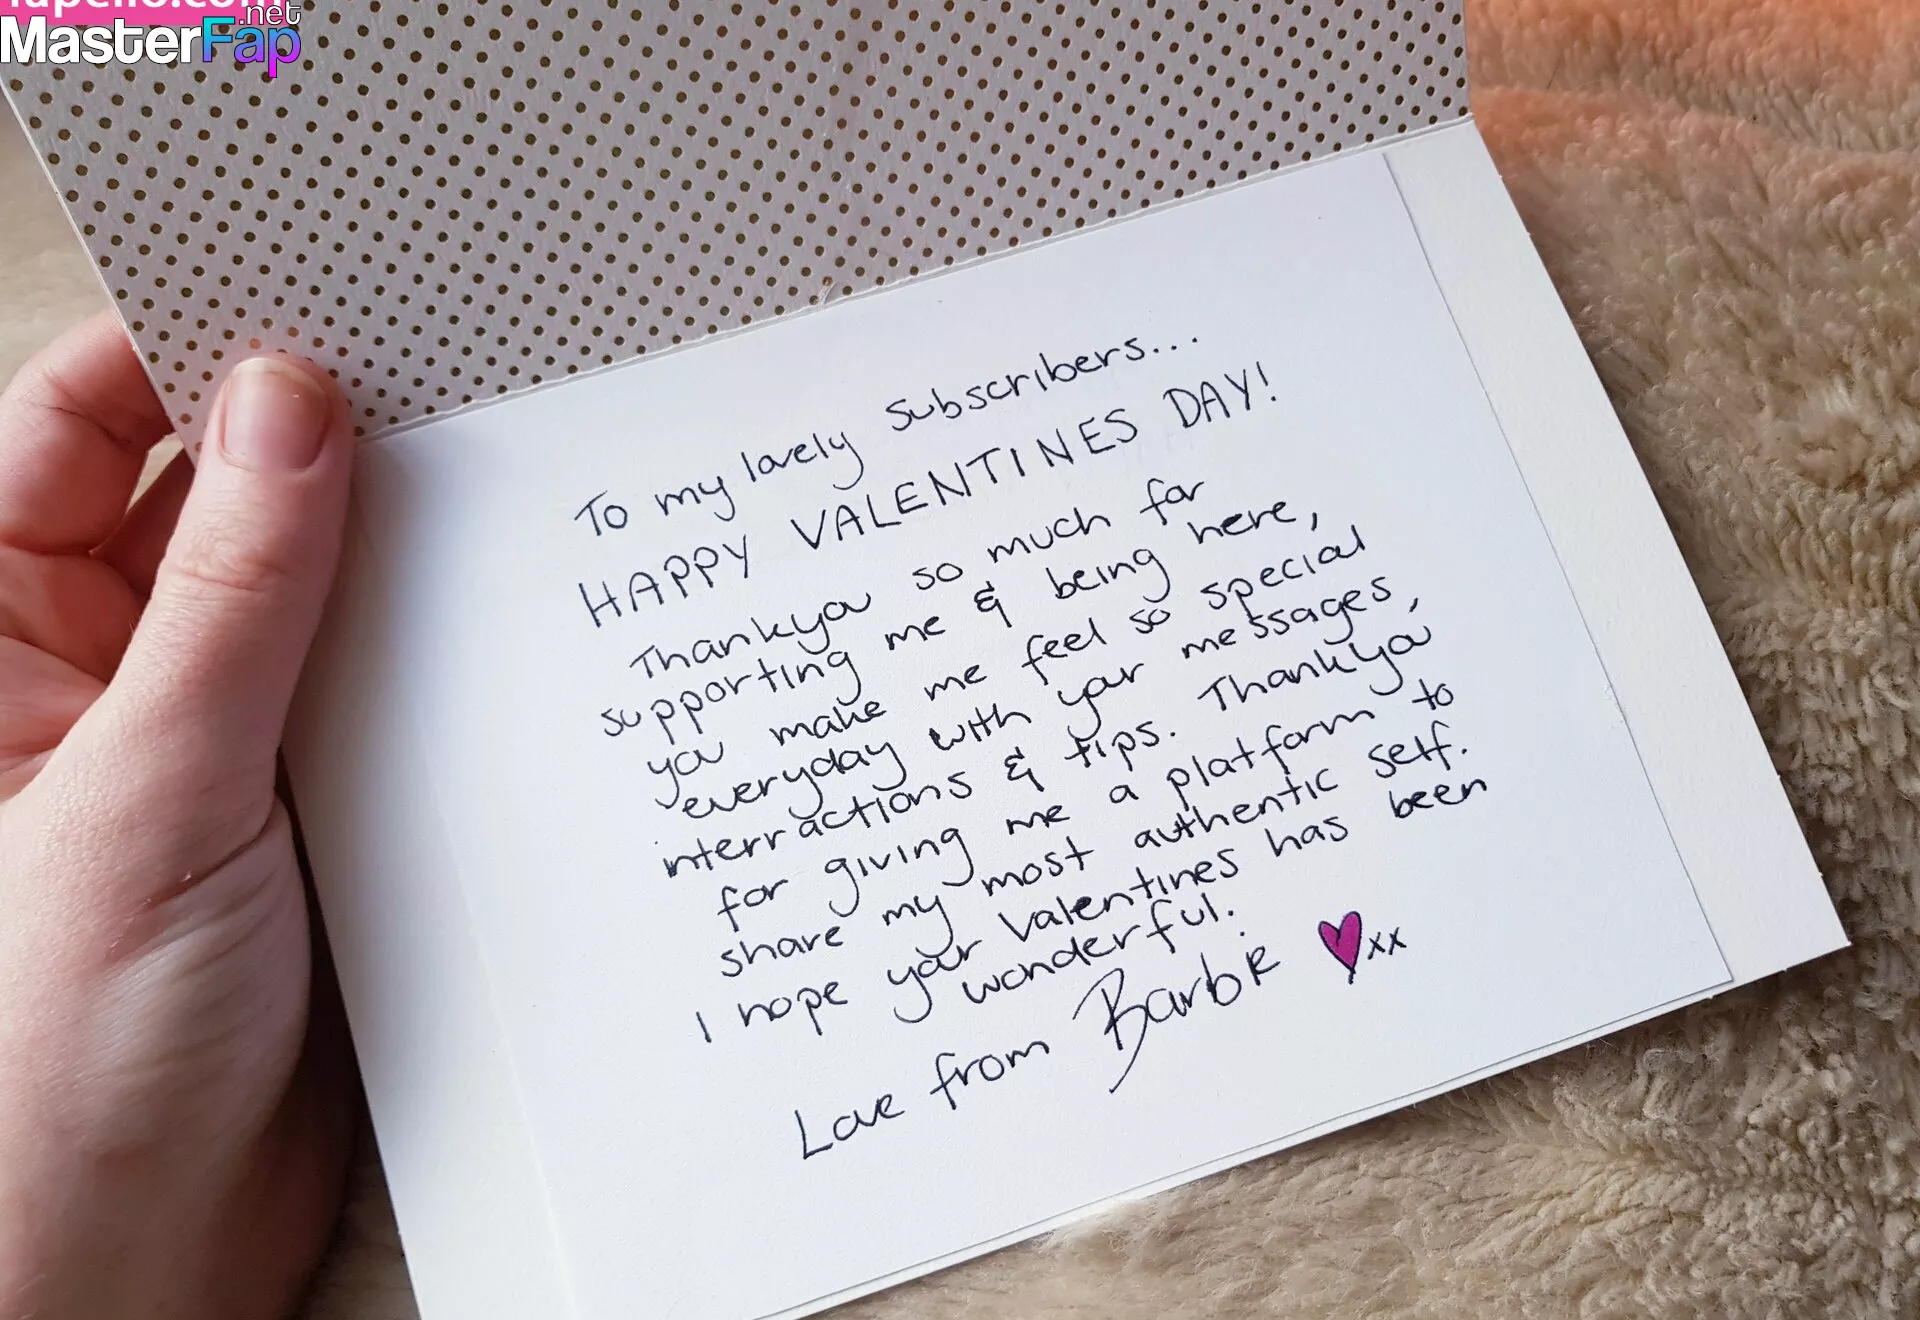 fapello.com
MasterFap.net
To my lovely subscribers...
HAPPY VALENTINES DAY!
Thankyou so much for
supporting me & being here,
you make me feel so special
everyday with your messages,
interractions & tips. Thankyou
for giving me a platform to
share my most authentic self.
I hope your valentines has been
wonderful.
Love from Barbie xx